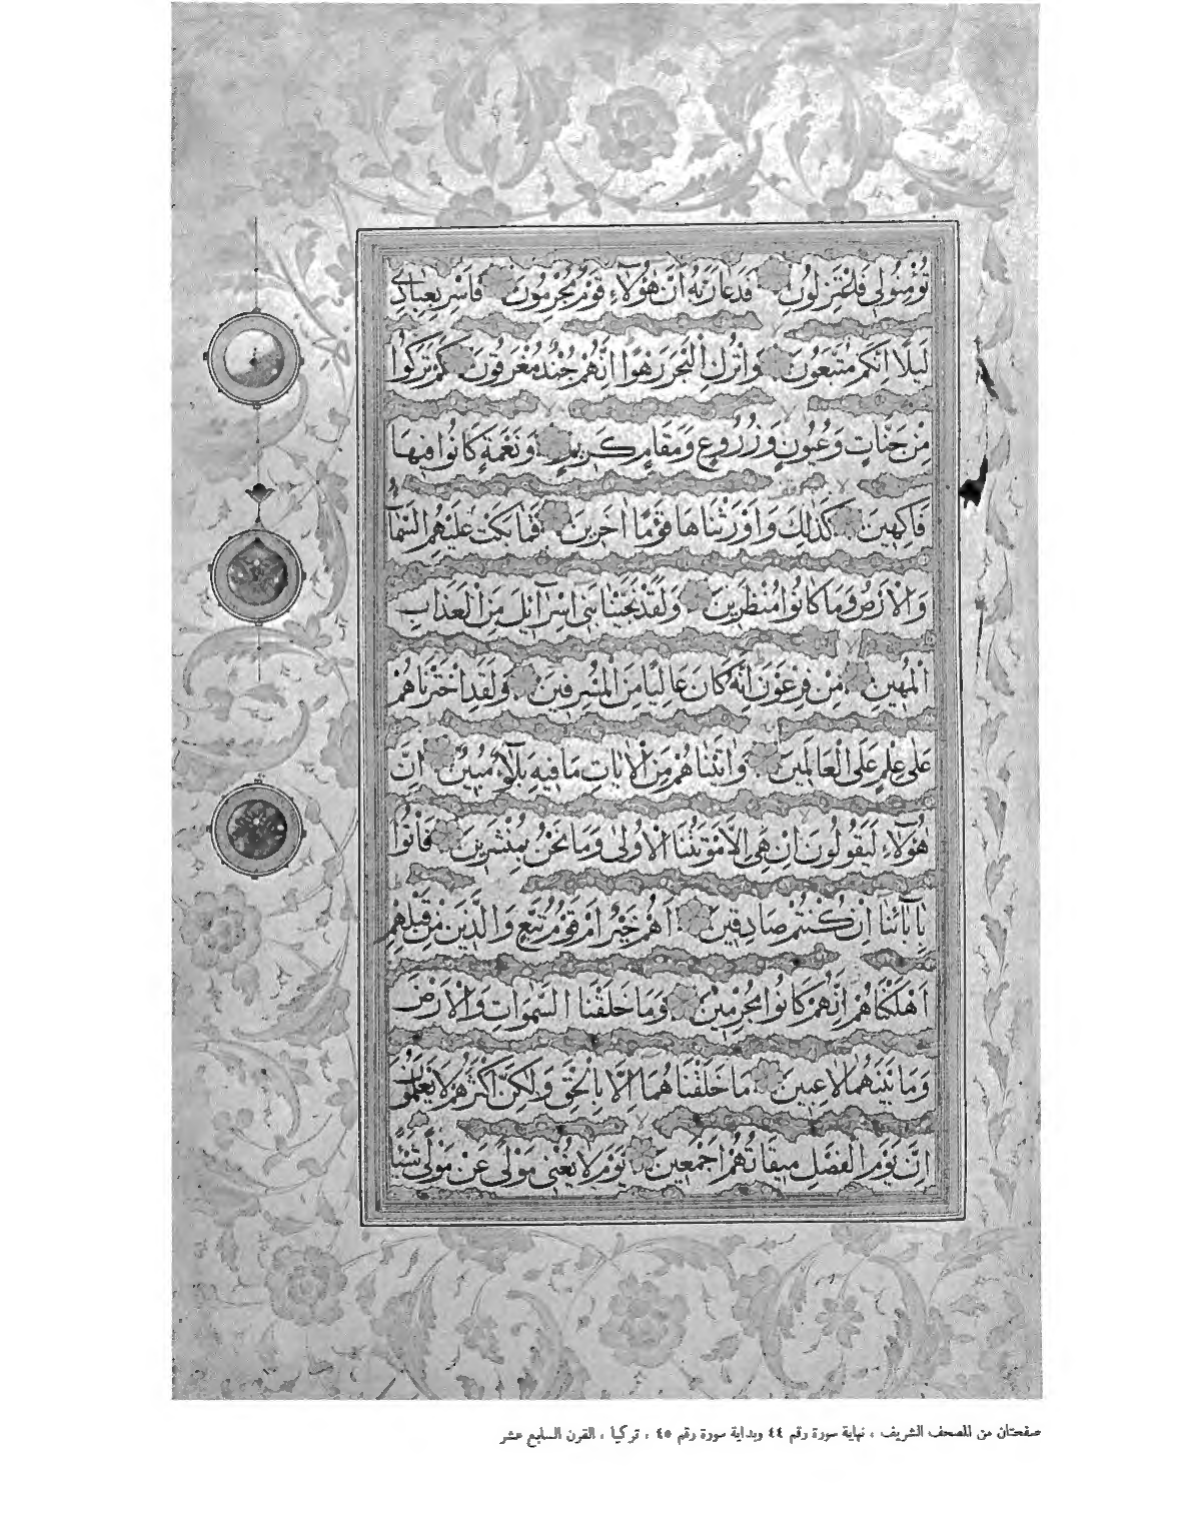 تُؤْمِنُوا لِي فَاعْتَزِلُونِ فَدَعَا رَبَّهُ اَنَّ هٰؤُلَاءِ قَوْمٌ مُجْرِمُونَ فَاَسْرِ بِعِبَادِي
لَيْلًا اِنَّكُمْ مُتَّبَعُونَ وَاتْرُكِ الْبَحْرَ رَهْوًا اِنَّهُمْ جُنْدٌ مُغْرَقُونَ كَمْ تَرَكُوا
مِنْ جَنَّاتٍ وَعُيُونٍ وَزُرُوعٍ وَمَقَامٍ كَرِيمٍ وَنَعْمَةٍ كَانُوا فِيهَا
فَاكِهِينَ كَذٰلِكَ وَاَوْرَثْنَاهَا قَوْمًا اٰخَرِينَ فَمَا بَكَتْ عَلَيْهِمُ السَّمَاءُ
وَالْاَرْضُ وَمَا كَانُوا مُنْظَرِينَ وَلَقَدْ نَجَّيْنَا بَنِي اِسْرَآئِيلَ مِنَ الْعَذَابِ
الْمُهِينِ مِنْ فِرْعَوْنَ اِنَّهُ كَانَ عَالِيًا مِنَ الْمُسْرِفِينَ وَلَقَدِ اخْتَرْنَاهُمْ
عَلٰى عِلْمٍ عَلَى الْعَالَمِينَ وَاٰتَيْنَاهُمْ مِنَ الْاٰيَاتِ مَا فِيهِ بَلٰٓؤٌ مُبِينٌ اِنَّ
هٰؤُلَاءِ لَيَقُولُونَ اِنْ هِيَ اِلَّا مَوْتَتُنَا الْاُولٰى وَمَا نَحْنُ بِمُنْشَرِينَ فَاْتُوا
بِاٰبَائِنَا اِنْ كُنْتُمْ صَادِقِينَ اَهُمْ خَيْرٌ اَمْ قَوْمُ تُبَّعٍ وَالَّذِينَ مِنْ قَبْلِهِمْ
اَهْلَكْنَاهُمْ اِنَّهُمْ كَانُوا مُجْرِمِينَ وَمَا خَلَقْنَا السَّمٰوَاتِ وَالْاَرْضَ
وَمَا بَيْنَهُمَا لَاعِبِينَ مَا خَلَقْنَاهُمَا اِلَّا بِالْحَقِّ وَلٰكِنَّ اَكْثَرَهُمْ لَا يَعْلَمُونَ
اِنَّ يَوْمَ الْفَصْلِ مِيقَاتُهُمْ اَجْمَعِينَ يَوْمَ لَا يُغْنِي مَوْلًى عَنْ مَوْلًى شَيْئًا
صفحتان من المصحف الشريف ، نهاية سورة رقم ٤٤ وبداية سورة رقم ٤٥ ، تركيا ، القرن السابع عشر